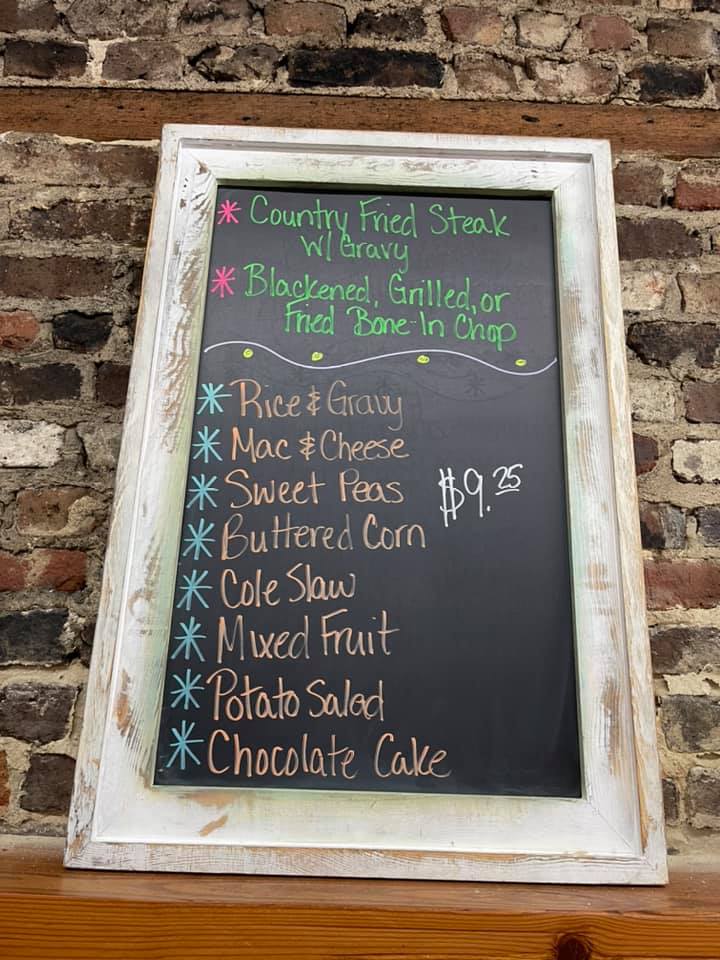 * Country Fried Steak
W/ Gravy
* Blackened, Grilled, or
Fried Bone-In Chop
* Rice & Gravy
* Mac & Cheese
* Sweet Peas
$9.25
* Buttered Corn
* Cole Slaw
* Mixed Fruit
* Potato Salad
* Chocolate Cake